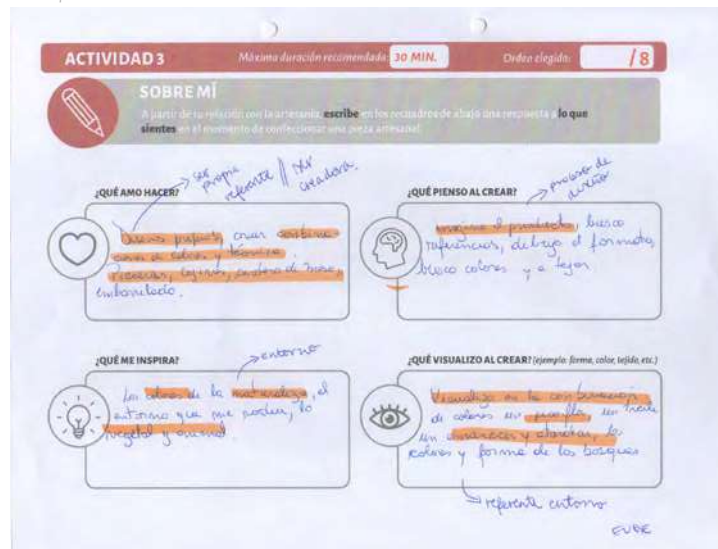 ACTIVIDAD 3
Máxima duración recomendada: 30 MIN.
Orden elegido: /8
SOBRE MÍ
A partir de tu relación con la artesanía, escribe en los recuadros de abajo una respuesta a lo que
sientes en el momento de confeccionar una pieza artesanal.
ser propia referente // creadora.
¿QUÉ AMO HACER?
crear combina-
ciones de colores y técnica.
embarrilado.
proceso de diseño
¿QUÉ PIENSO AL CREAR?
imagino el producto, busco
referencias, dibujo el formato,
busco colores y a tejer
entorno
¿QUÉ ME INSPIRA?
Los colores de la naturaleza, el
entorno que me rodea, lo
vegetal y animal.
¿QUÉ VISUALIZO AL CREAR? (ejemplo: forma, color, tejido, etc.)
Visualizo en la combinación
de colores un
un amanecer y atardecer, los
colores y forma de los bosques
referente entorno